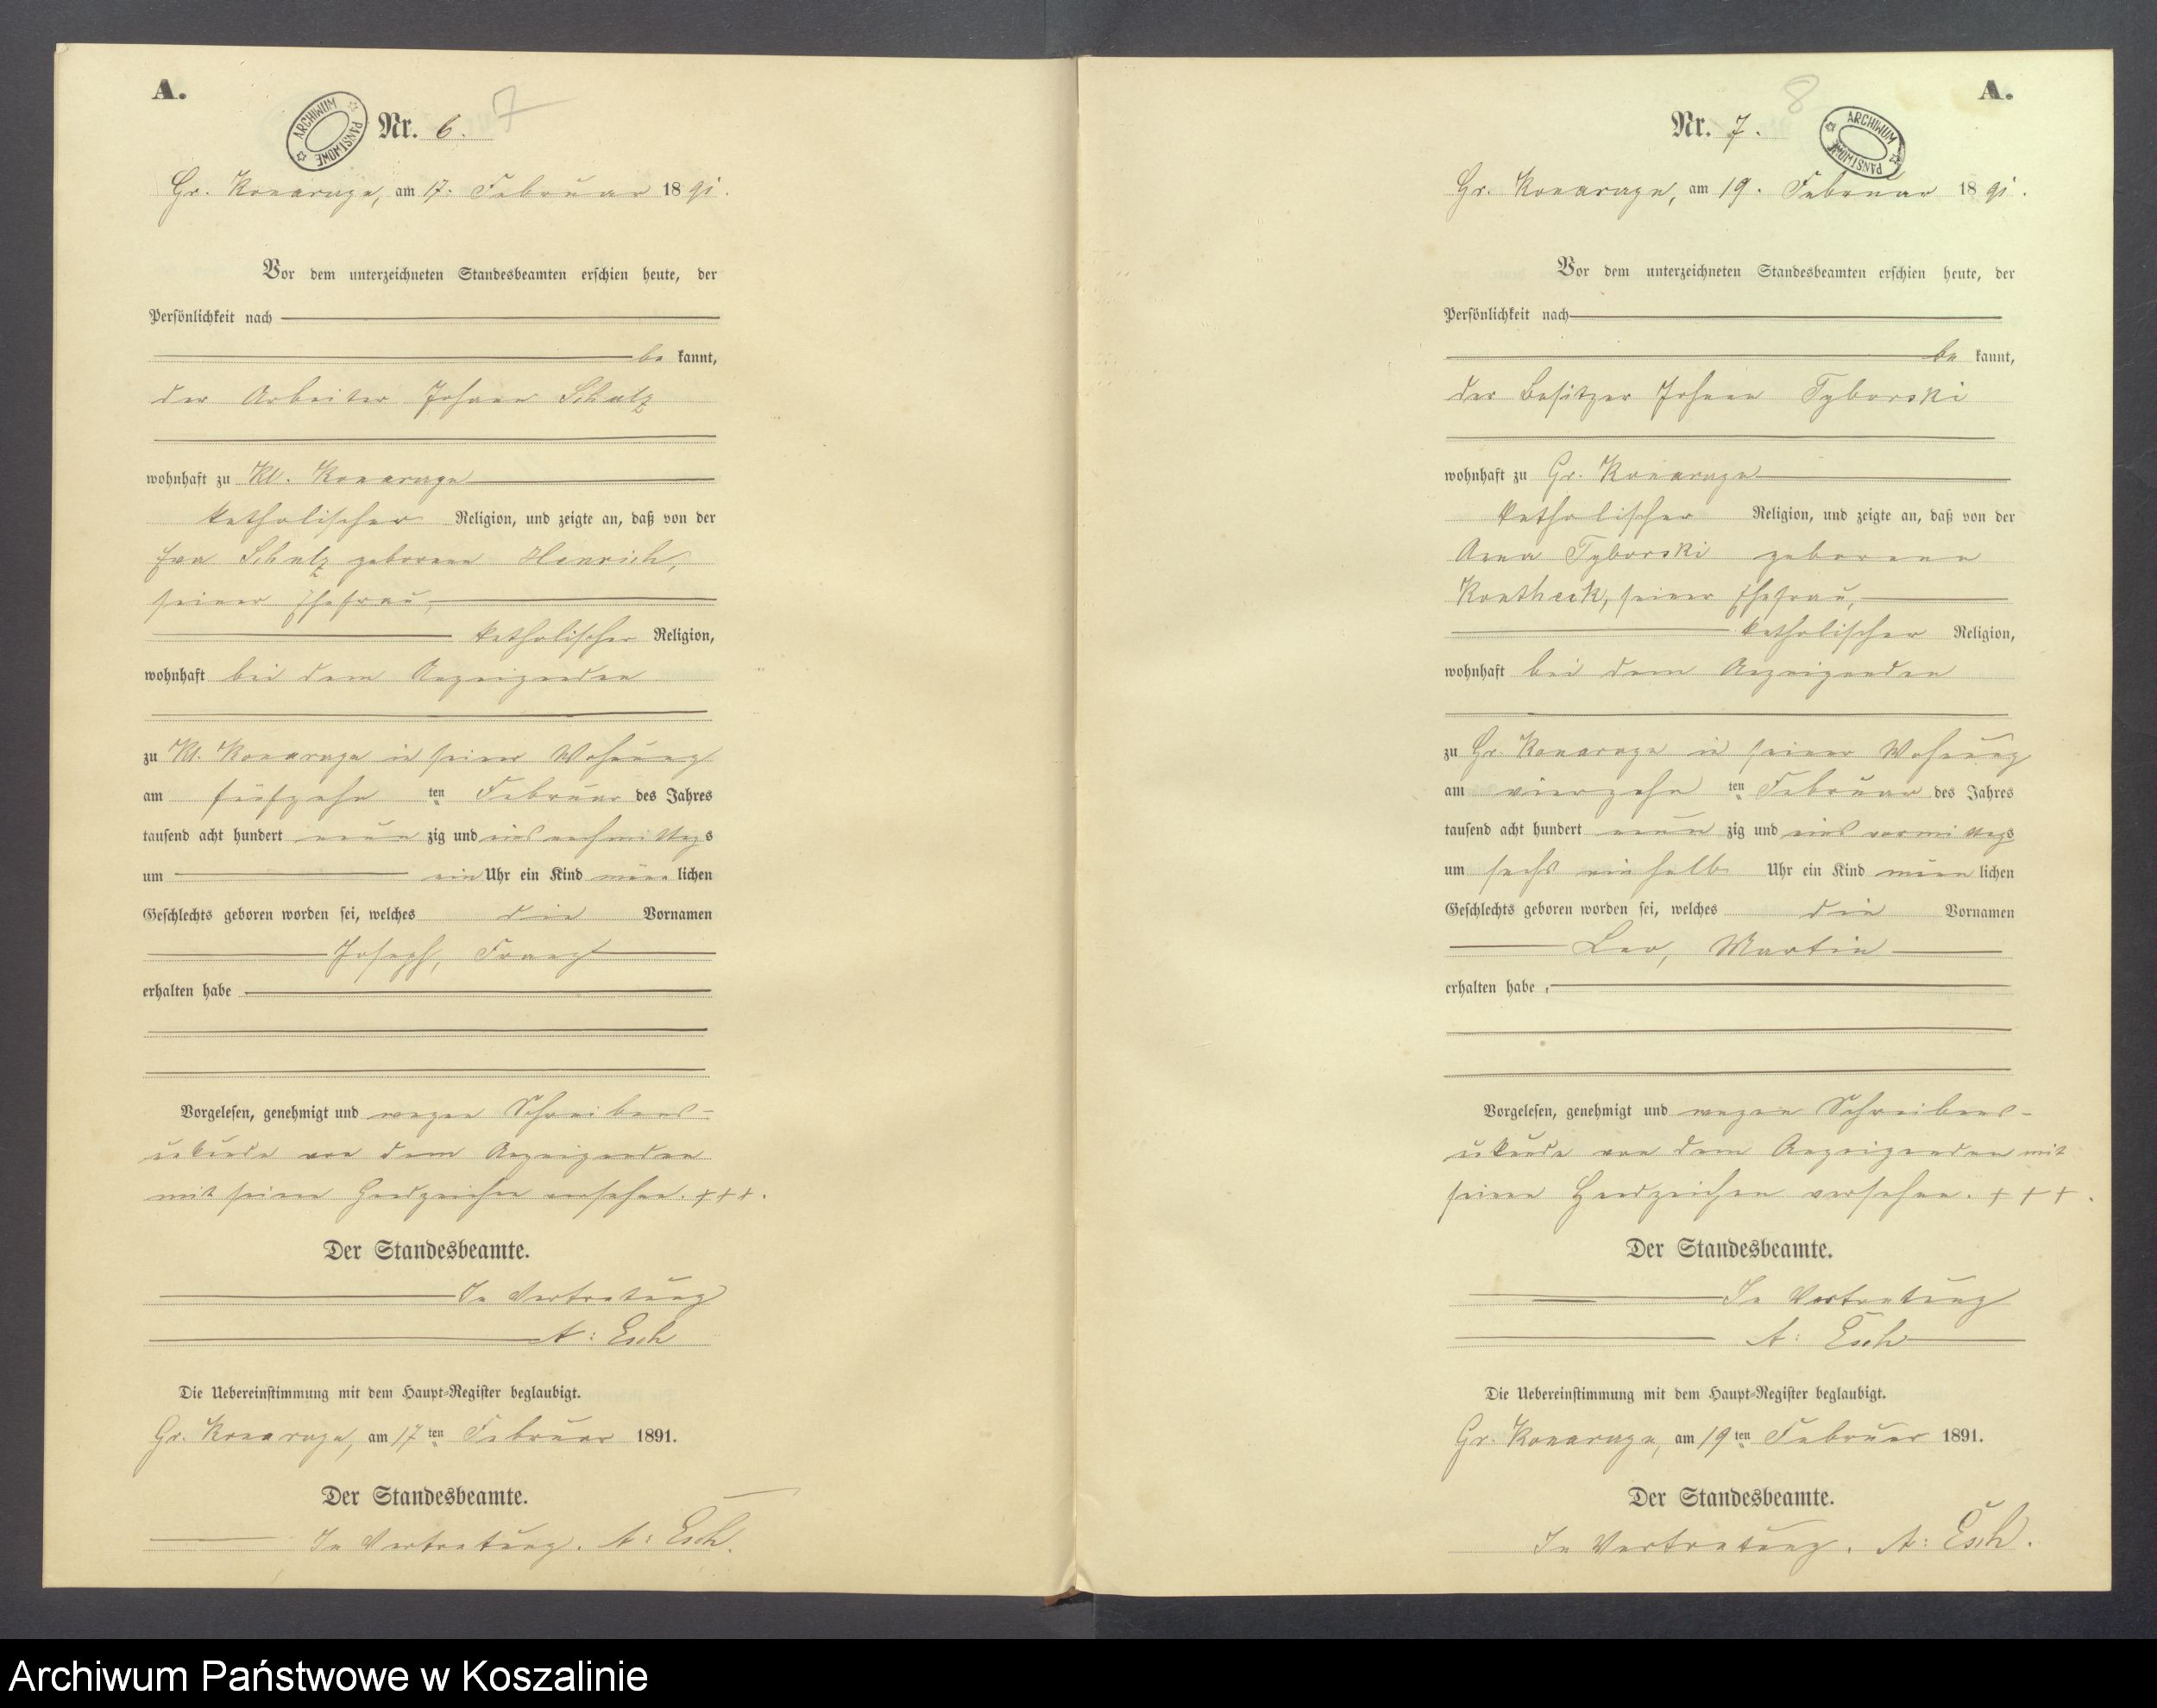 A.
ARCHIWUM PAŃSTWOWE
Nr. 6.
7
Gr. Konarzyn, am 17. Februar 1891.
Vor dem unterzeichneten Standesbeamten erschien heute, der
Persönlichkeit nach
be kannt,
der Arbeiter Johann Schulz
wohnhaft zu Kl. Konarzyn
katholischer Religion, und zeigte an, daß von der
Eva Schulz geborene Henrich,
seiner Ehefrau,
katholischer Religion,
wohnhaft bei dem Anzeigenden
zu Kl. Konarzyn in seiner Wohnung
am fünfzehn ten Februar des Jahres
tausend acht hundert neun zig und eins nachmittags
um ein Uhr ein Kind männ lichen
Geschlechts geboren worden sei, welches die Vornamen
Joseph, Franz
erhalten habe
Vorgelesen, genehmigt und wegen Schreibens-
unkunde von dem Anzeigenden
mit seinen Handzeichen versehen. +++.
Der Standesbeamte.
In Vertretung
A: Esch
Die Uebereinstimmung mit dem Haupt-Register beglaubigt.
Gr. Konarzyn, am 17 ten Februar 1891.
Der Standesbeamte.
In Vertretung. A: Esch.
A.
8
Nr. 7.
ARCHIWUM PAŃSTWOWE
Gr. Konarzyn, am 19. Februar 1891.
Vor dem unterzeichneten Standesbeamten erschien heute, der
Persönlichkeit nach
be kannt,
der Besitzer Johann Tyborski
wohnhaft zu Gr. Konarzyn
katholischer Religion, und zeigte an, daß von der
Anna Tyborski geborene
seiner Ehefrau,
katholischer Religion,
wohnhaft bei dem Anzeigenden
zu Gr. Konarzyn in seiner Wohnung
am vierzehn ten Februar des Jahres
tausend acht hundert neun zig und eins vormittags
um sechs ein halb Uhr ein Kind männ lichen
Geschlechts geboren worden sei, welches die Vornamen
Leo, Martin
erhalten habe.
Vorgelesen, genehmigt und wegen Schreibens-
unkunde von dem Anzeigenden mit
seinen Handzeichen versehen. +++.
Der Standesbeamte.
In Vertretung
A: Esch
Die Uebereinstimmung mit dem Haupt-Register beglaubigt.
Gr. Konarzyn, am 19 ten Februar 1891.
Der Standesbeamte.
In Vertretung. A: Esch.
Archiwum Państwowe w Koszalinie